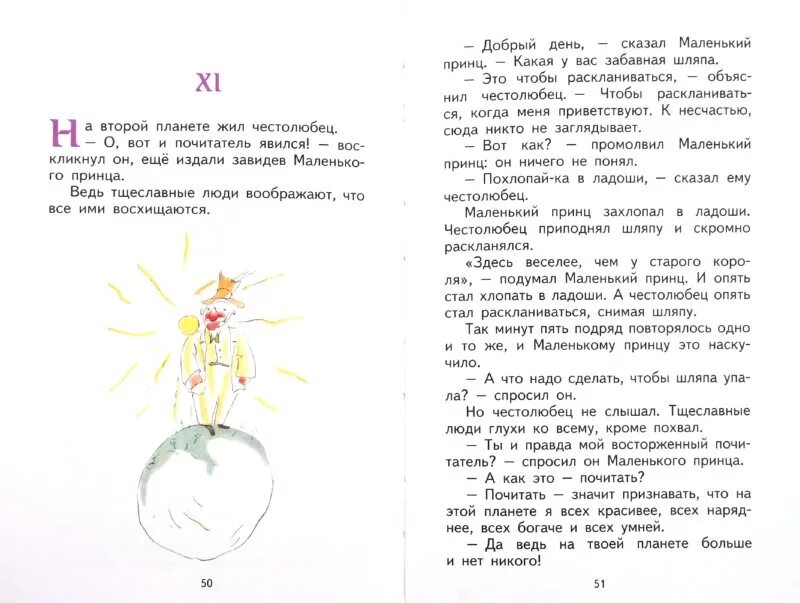 XI
На второй планете жил честолюбец.
— О, вот и почитатель явился! — вос-
кликнул он, ещё издали завидев Маленько-
го принца.
Ведь тщеславные люди воображают, что
все ими восхищаются.
50
— Добрый день, — сказал Маленький
принц. — Какая у вас забавная шляпа.
— Это чтобы раскланиваться, — объяс-
нил честолюбец. — Чтобы раскланивать-
ся, когда меня приветствуют. К несчастью,
сюда никто не заглядывает.
— Вот как? — промолвил Маленький
принц: он ничего не понял.
— Похлопай-ка в ладоши, — сказал ему
честолюбец.
Маленький принц захлопал в ладоши.
Честолюбец приподнял шляпу и скромно
раскланялся.
«Здесь веселее, чем у старого коро-
ля», — подумал Маленький принц. И опять
стал хлопать в ладоши. А честолюбец опять
стал раскланиваться, снимая шляпу.
Так минут пять подряд повторялось одно
и то же, и Маленькому принцу это наску-
чило.
— А что надо сделать, чтобы шляпа упа-
ла? — спросил он.
Но честолюбец не слышал. Тщеславные
люди глухи ко всему, кроме похвал.
— Ты и правда мой восторженный почи-
татель? — спросил он Маленького принца.
— А как это — почитать?
— Почитать — значит признавать, что на
этой планете я всех красивее, всех наряд-
нее, всех богаче и всех умней.
— Да ведь на твоей планете больше
и нет никого!
51